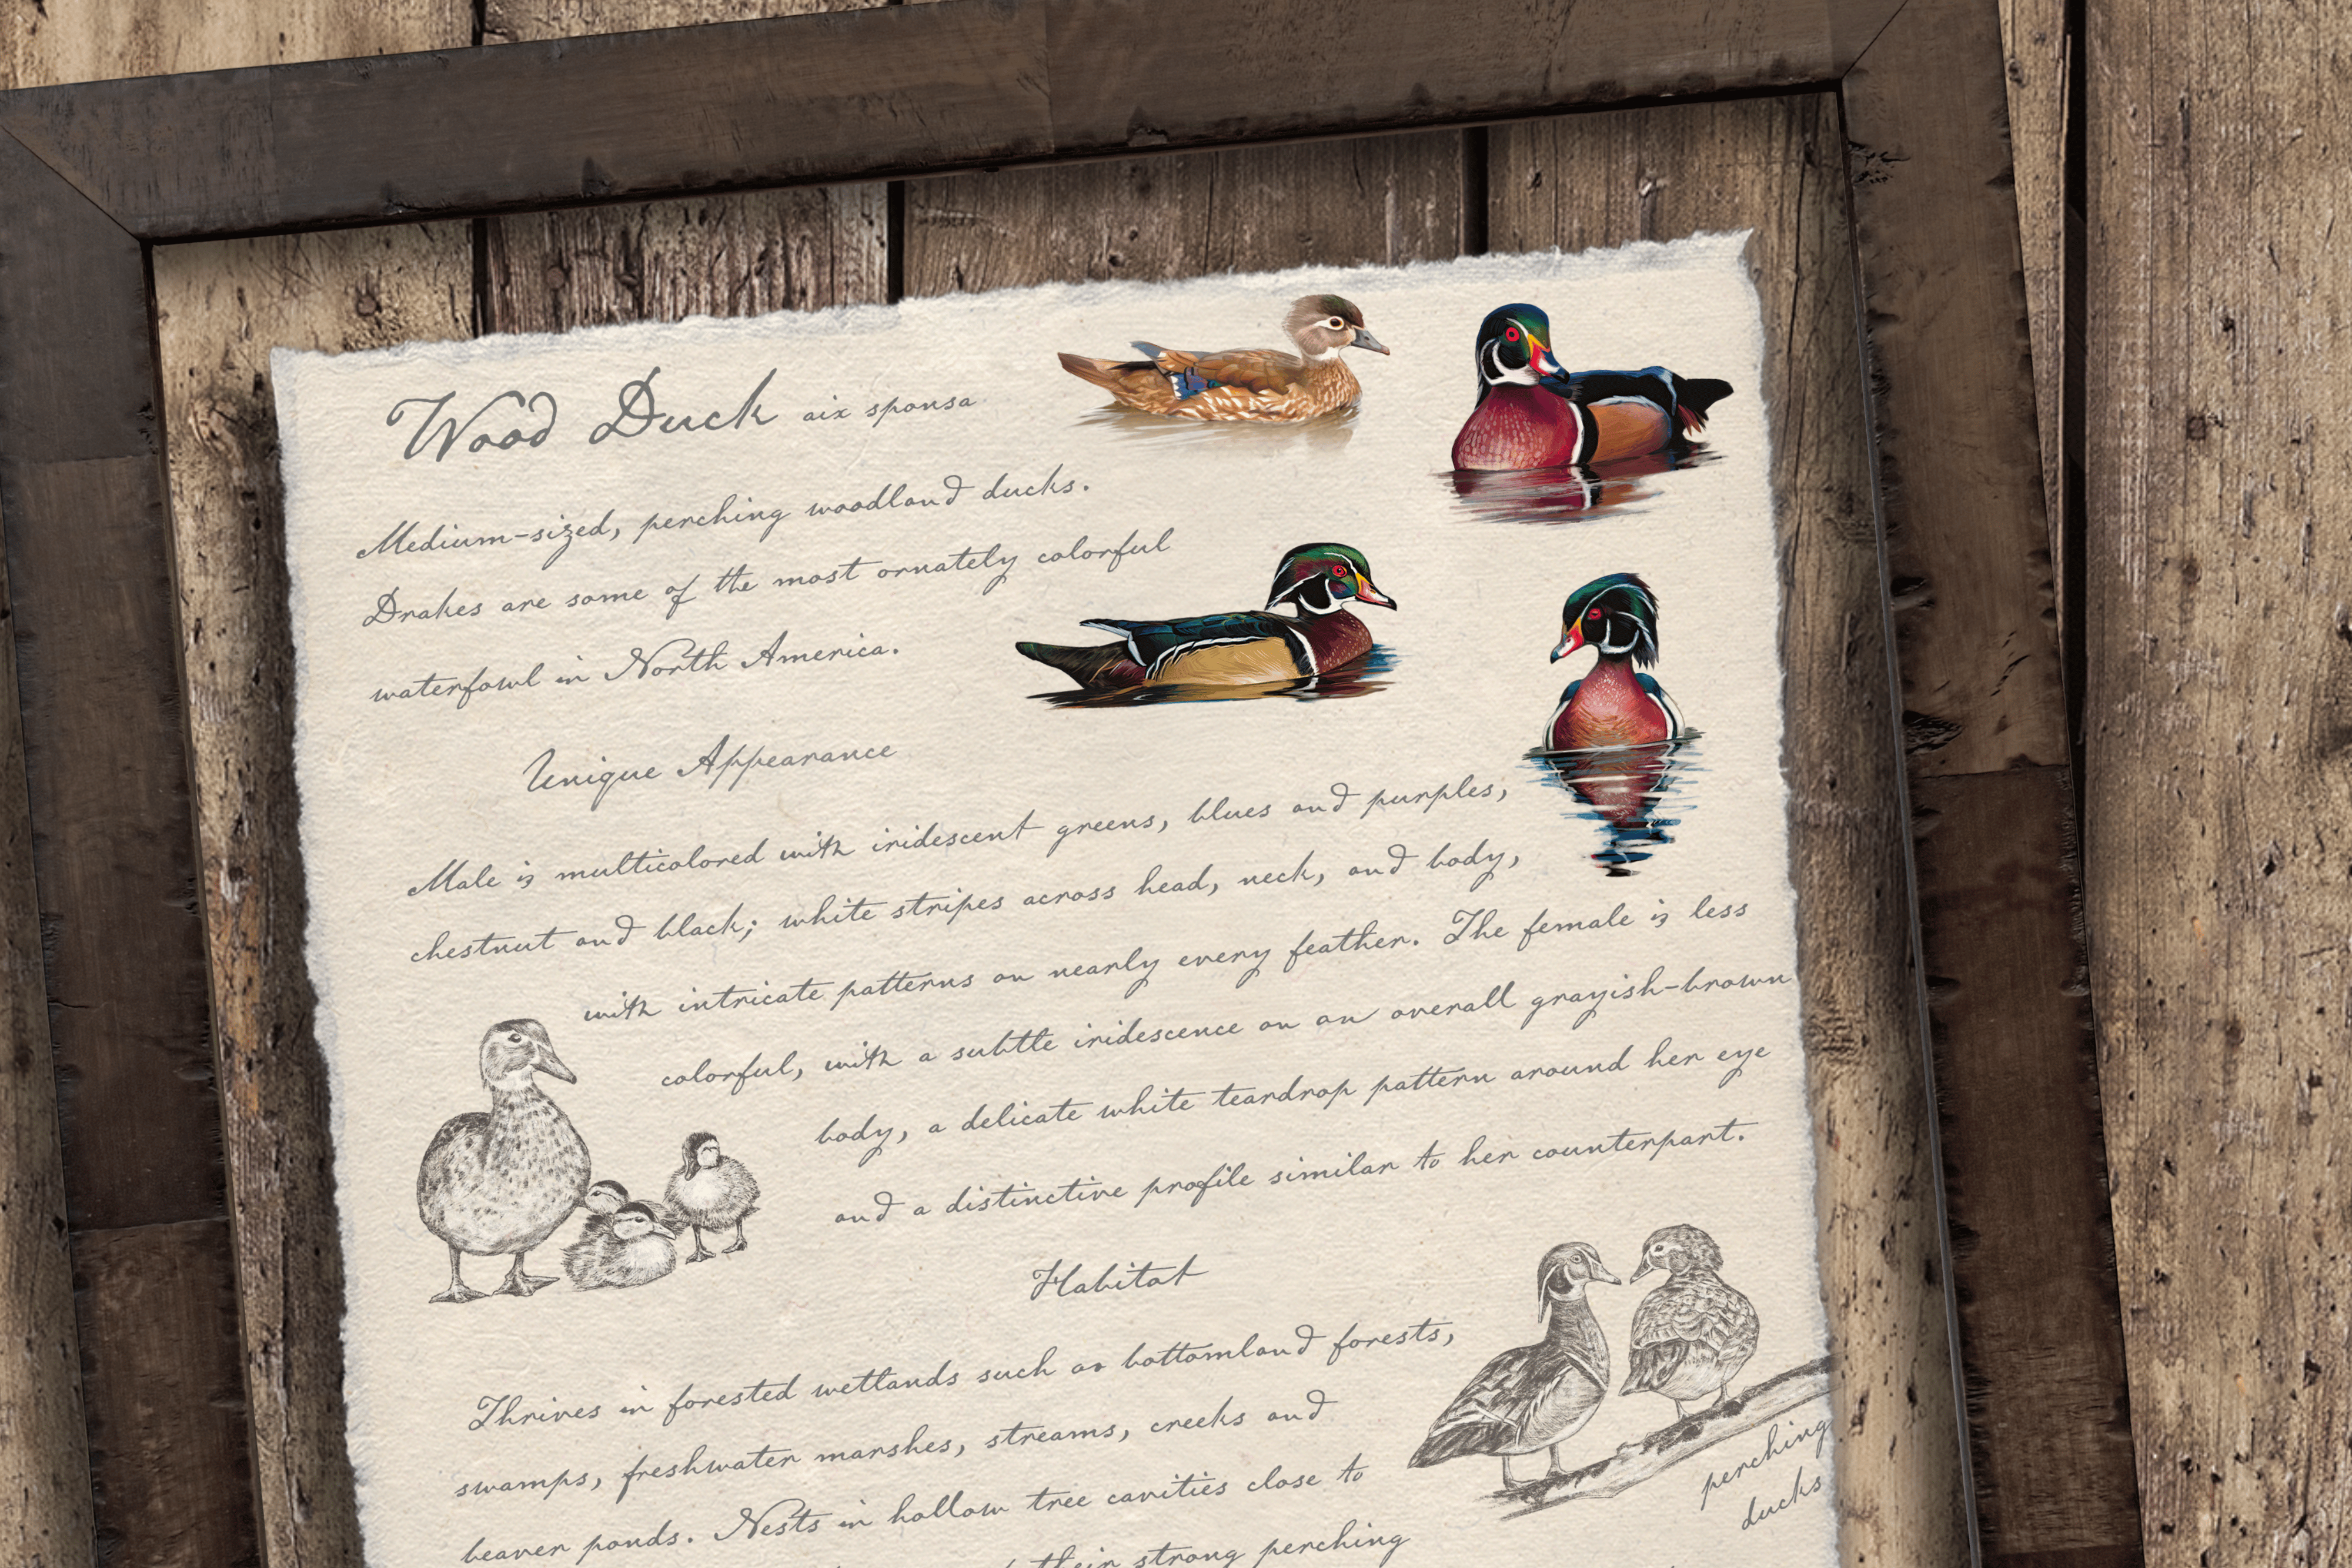 Wood Duck aix sponsa
Medium-sized, perching woodland ducks.
Drakes are some of the most ornately colorful
waterfowl in North America.
Unique Appearance
Male is multicolored with iridescent greens, blues and purples,
chestnut and black; white stripes across head, neck, and body,
with intricate patterns on nearly every feather. The female is less
colorful, with a subtle iridescence on an overall grayish-brown
body, a delicate white teardrop pattern around her eye
and a distinctive profile similar to her counterpart.
Habitat
Thrives in forested wetlands such as bottomland forests,
swamps, freshwater marshes, streams, creeks and
beaver ponds. Nests in hollow tree cavities close to
their strong perching
perching
ducks